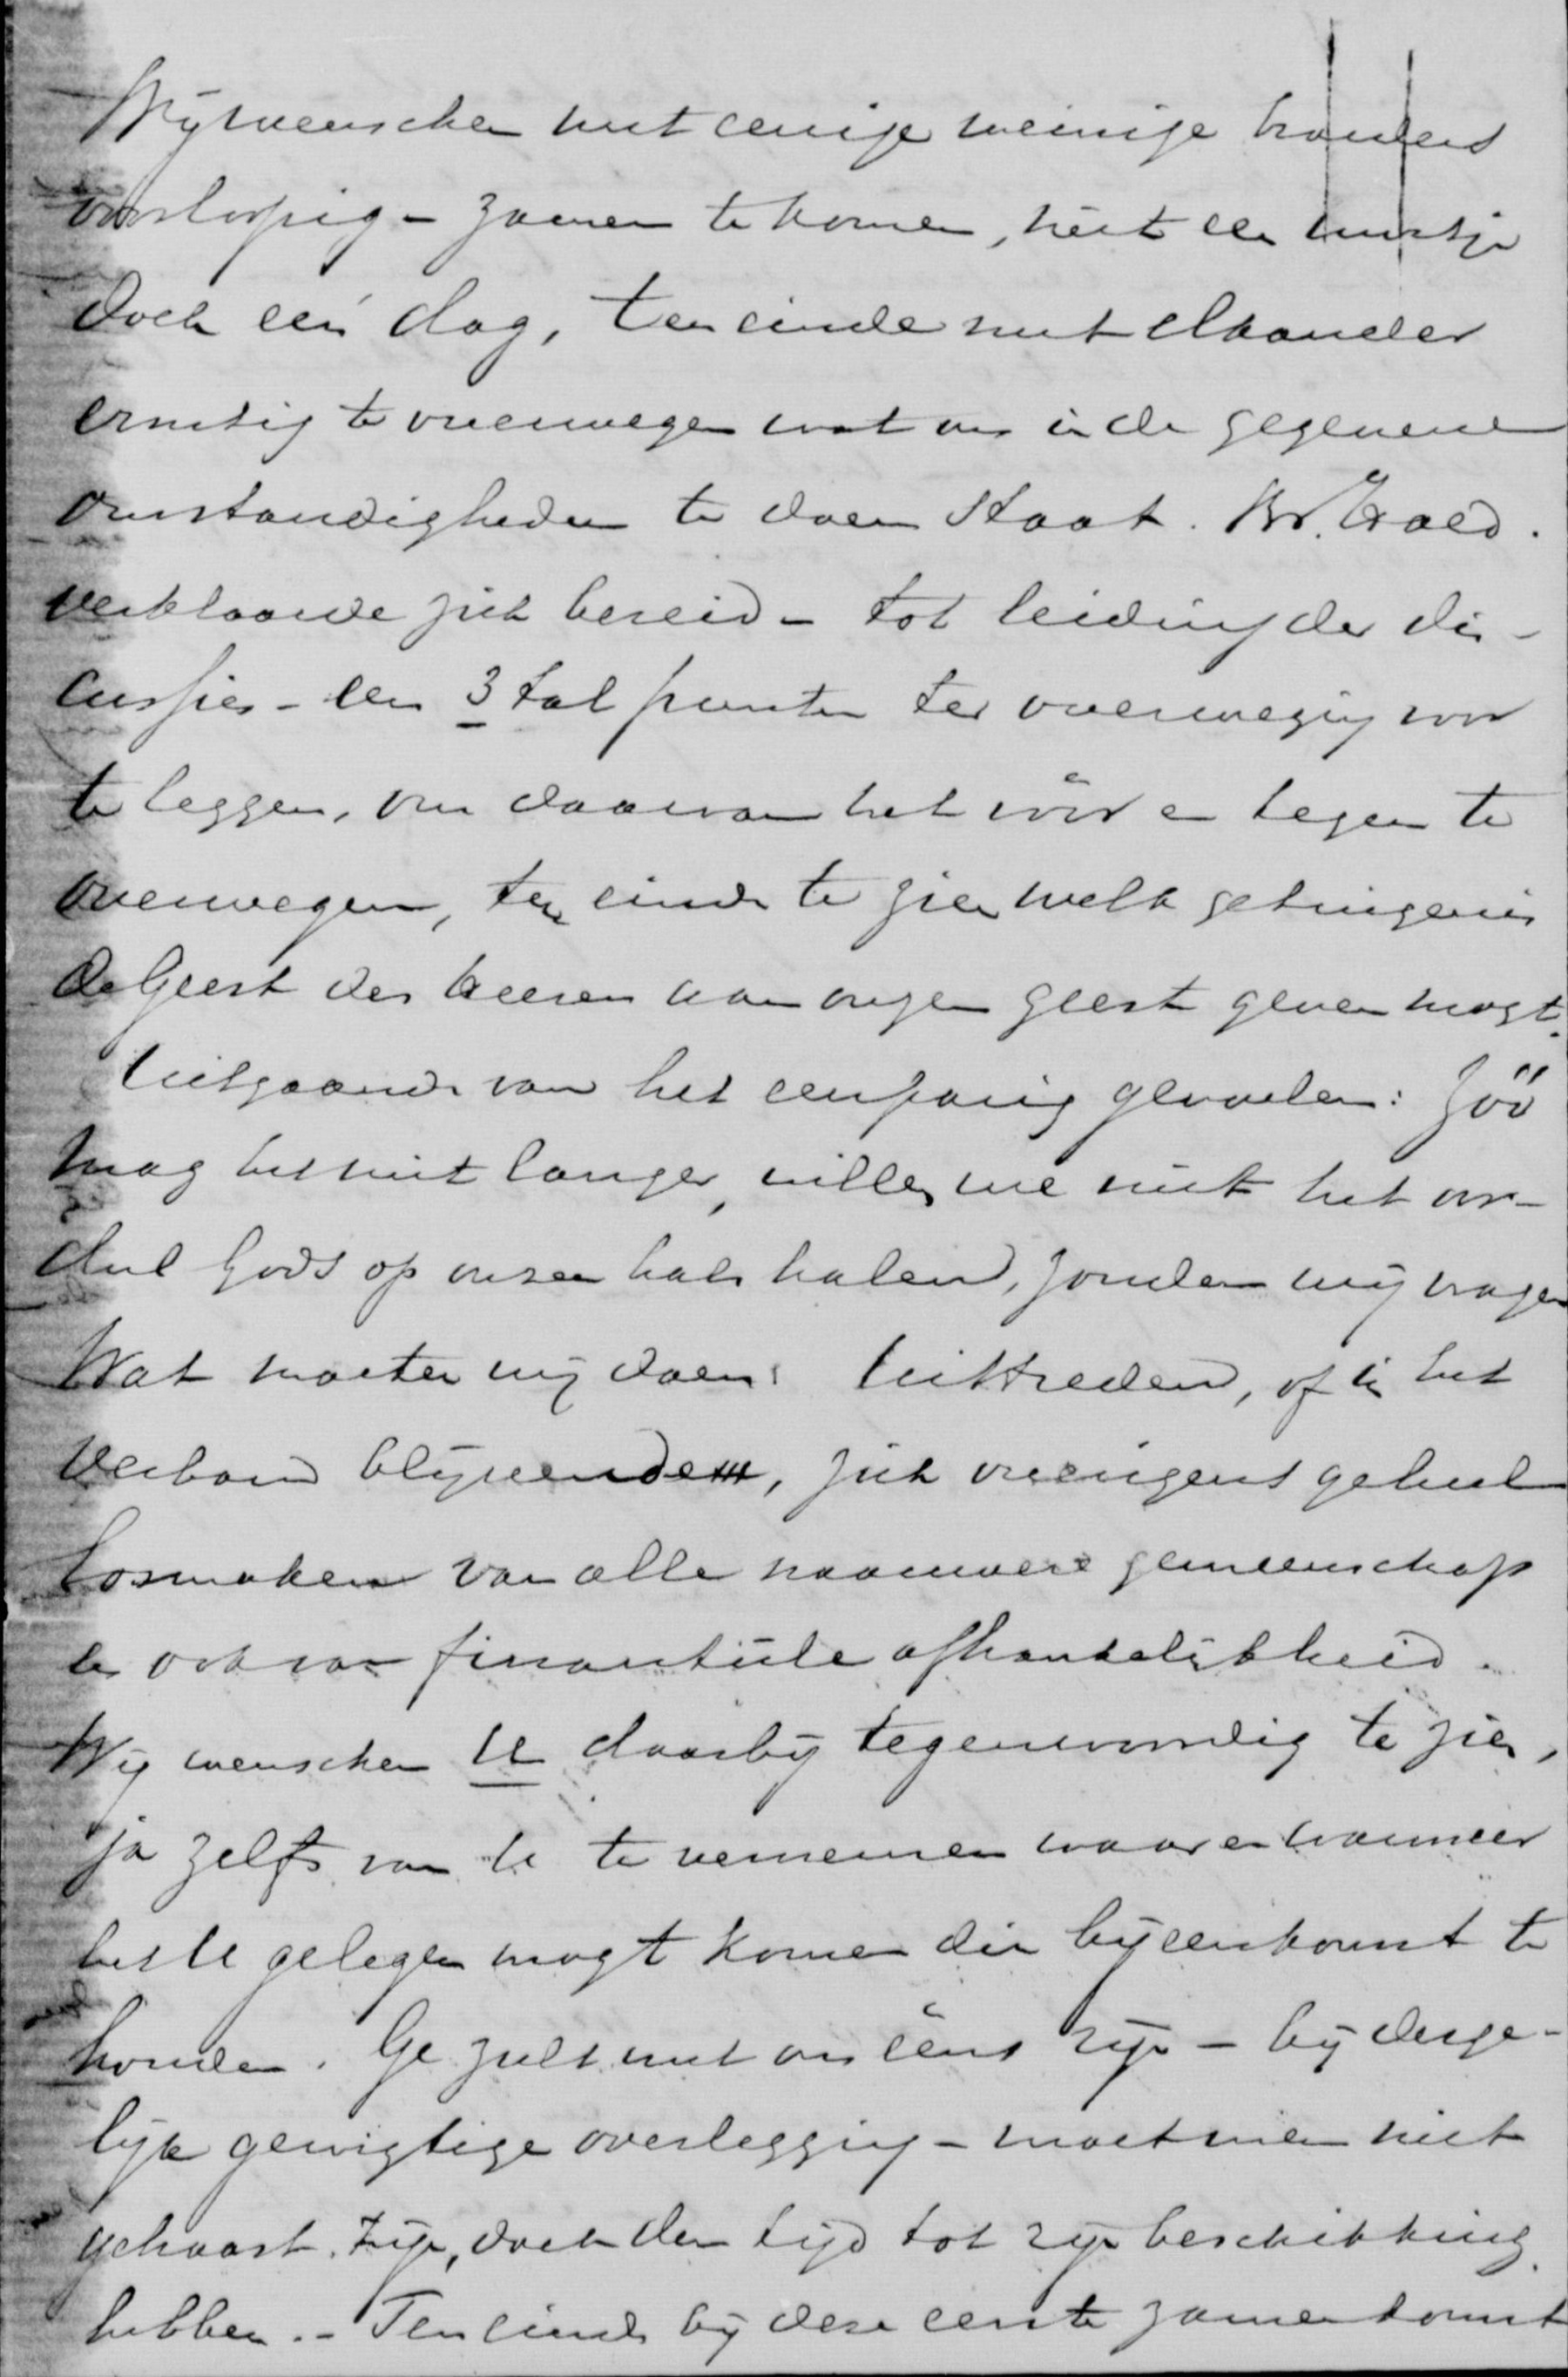 Wij wenschen met eenige weinige broeders
voorloopig - zamen te komen, niet een uurtje
doch een dag, ten einde met elkander
ernstig te overwegen wat ons in de gegevene
omstandigheden te doen staat. Br.
verklaarde zich bereid - tot leiding der dis-
cussies - een 3 tal punten ter overweging voor
te leggen, om daarvan het vóór en tegen te
overwegen, ten einde te zien welk getuigenis
de Geest des Heeren aan onzen geest geven mogt.
Uitgaande van het eenparig gevoelen: zóó
mag het niet langer, willen we niet het oor-
deel Gods op onzen hals halen, zouden wij vragen
Wat moeten wij doen: Uittreden, of in het
verband blijvende, zich overigens geheel
losmaken van alle naauwere gemeenschap
en ook van finantiële afhankelijkheid.
Wij wenschen U daarbij tegenwoordig te zien,
ja zelfs van U te vernemen waar en wanneer
het U gelegen mogt komen die bijeenkomst te
houden. Ge zult met ons ééns zijn - bij derge-
lijke gewigtige overlegging - moet men niet
gehaast zijn, doch den tijd tot zijn beschikking
hebben. - Ten einde bij deze eerste zamenkomst